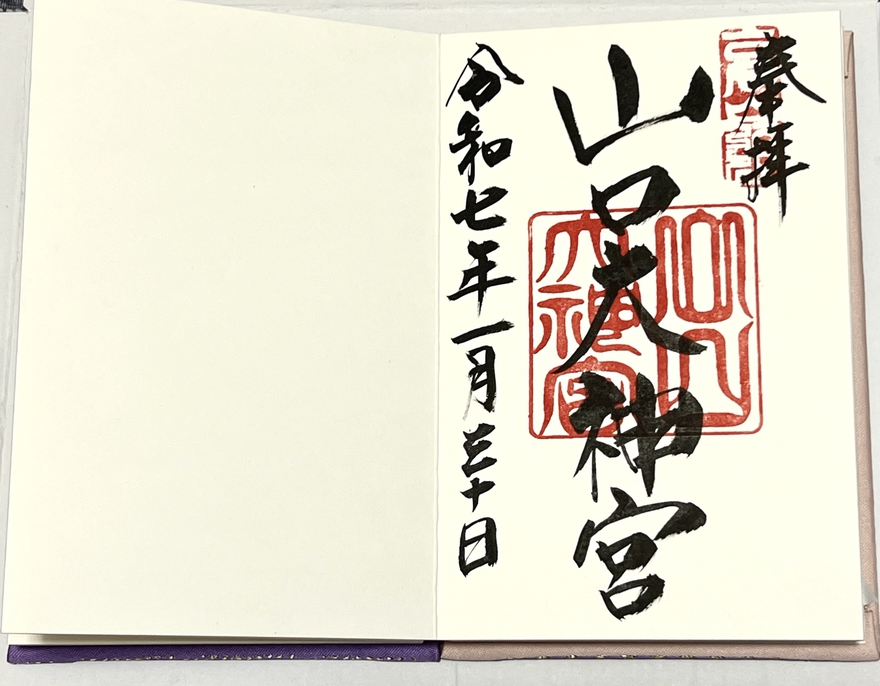 奉拝
山口大神宮
山口
大神宮
令和七年一月三十日